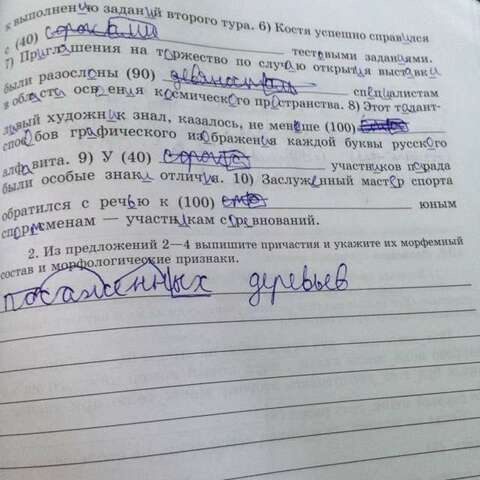 к выполнению заданий второго тура. 6) Костя успешно справился
с (40) сороками тестовыми заданиями.
7) Приглашения на торжество по случаю открытия выставки
были разосланы (90) специалистам
в области освоения космического пространства. 8) Этот талант-
ливый художник знал, казалось, не меньше (100)
способов графического изображения каждой буквы русского
алфавита. 9) У (40) сорока участников парада
были особые знаки отличия. 10) Заслуженный мастер спорта
обратился с речью к (100) юным
спортсменам — участникам соревнований.
2. Из предложений 2—4 выпишите причастия и укажите их морфемный
состав и морфологические признаки.
посаженных деревьев